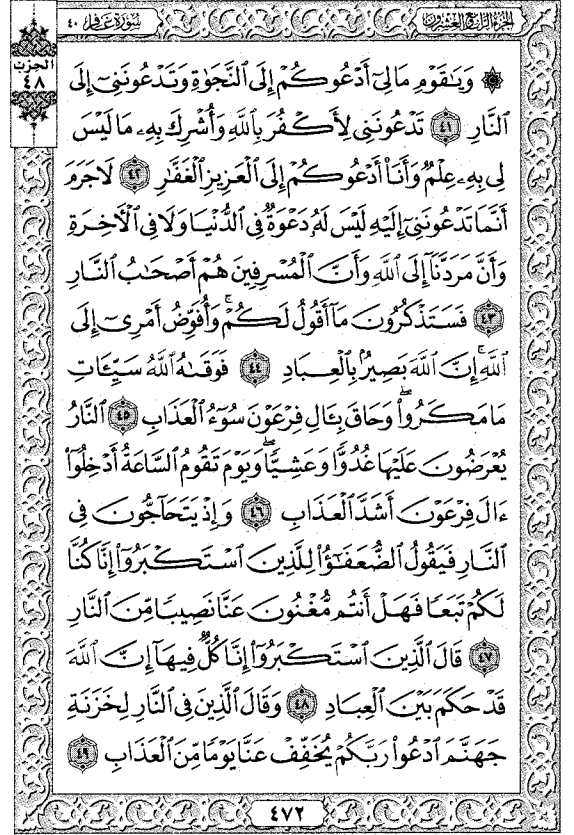 الجزء الرابع والعشرون
سورة غافر ٤٠
الحزب
٤٨
۞ وَيَٰقَوْمِ مَا لِيٓ أَدْعُوكُمْ إِلَى ٱلنَّجَوٰةِ وَتَدْعُونَنِيٓ إِلَى
ٱلنَّارِ ٤١ تَدْعُونَنِي لِأَكْفُرَ بِٱللَّهِ وَأُشْرِكَ بِهِۦ مَا لَيْسَ
لِي بِهِۦ عِلْمٌ وَأَنَا۠ أَدْعُوكُمْ إِلَى ٱلْعَزِيزِ ٱلْغَفَّٰرِ ٤٢ لَا جَرَمَ
أَنَّمَا تَدْعُونَنِيٓ إِلَيْهِ لَيْسَ لَهُۥ دَعْوَةٌ فِي ٱلدُّنْيَا وَلَا فِي ٱلْأٓخِرَةِ
وَأَنَّ مَرَدَّنَآ إِلَى ٱللَّهِ وَأَنَّ ٱلْمُسْرِفِينَ هُمْ أَصْحَٰبُ ٱلنَّارِ
٤٣ فَسَتَذْكُرُونَ مَآ أَقُولُ لَكُمْۚ وَأُفَوِّضُ أَمْرِيٓ إِلَى
ٱللَّهِۚ إِنَّ ٱللَّهَ بَصِيرٌۢ بِٱلْعِبَادِ ٤٤ فَوَقَىٰهُ ٱللَّهُ سَيِّـَٔاتِ
مَا مَكَرُوا۟ۖ وَحَاقَ بِـَٔالِ فِرْعَوْنَ سُوٓءُ ٱلْعَذَابِ ٤٥ ٱلنَّارُ
يُعْرَضُونَ عَلَيْهَا غُدُوًّا وَعَشِيًّاۖ وَيَوْمَ تَقُومُ ٱلسَّاعَةُ أَدْخِلُوٓا۟
ءَالَ فِرْعَوْنَ أَشَدَّ ٱلْعَذَابِ ٤٦ وَإِذْ يَتَحَآجُّونَ فِي
ٱلنَّارِ فَيَقُولُ ٱلضُّعَفَٰٓؤُا۟ لِلَّذِينَ ٱسْتَكْبَرُوٓا۟ إِنَّا كُنَّا
لَكُمْ تَبَعًا فَهَلْ أَنتُم مُّغْنُونَ عَنَّا نَصِيبًا مِّنَ ٱلنَّارِ
٤٧ قَالَ ٱلَّذِينَ ٱسْتَكْبَرُوٓا۟ إِنَّا كُلٌّ فِيهَآ إِنَّ ٱللَّهَ
قَدْ حَكَمَ بَيْنَ ٱلْعِبَادِ ٤٨ وَقَالَ ٱلَّذِينَ فِي ٱلنَّارِ لِخَزَنَةِ
جَهَنَّمَ ٱدْعُوا۟ رَبَّكُمْ يُخَفِّفْ عَنَّا يَوْمًا مِّنَ ٱلْعَذَابِ ٤٩
٤٧٢